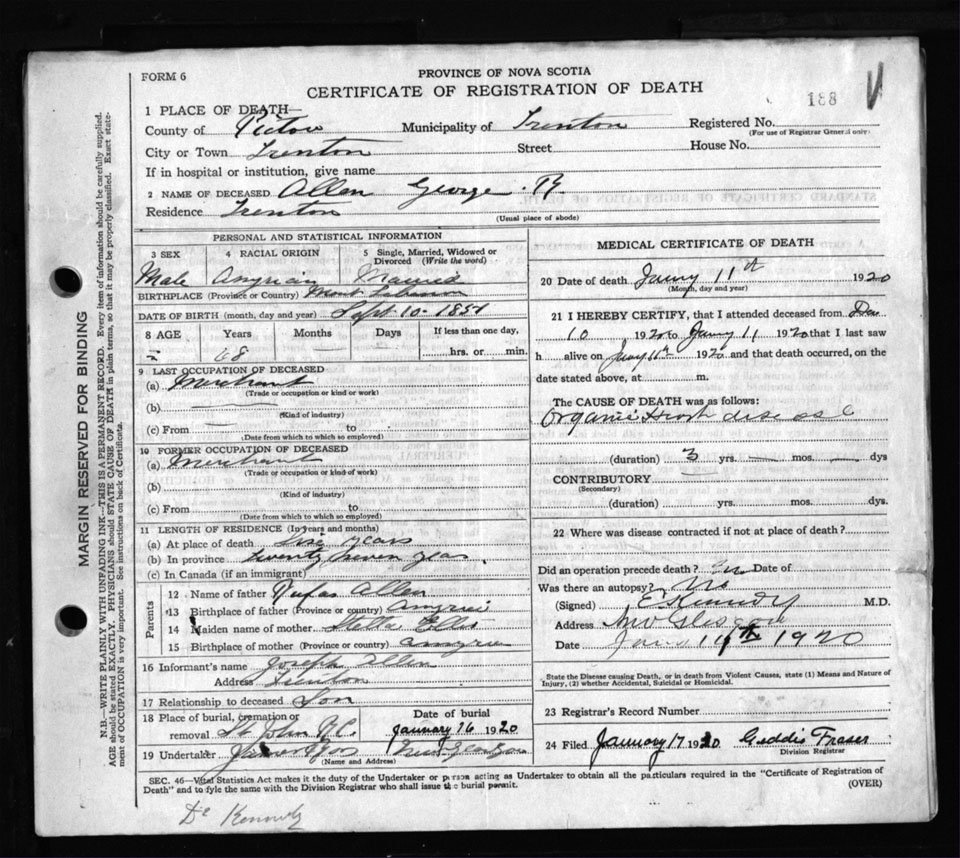 FORM 6
PROVINCE OF NOVA SCOTIA
CERTIFICATE OF REGISTRATION OF DEATH
188
1 PLACE OF DEATH—
County of Pictou Municipality of Trenton Registered No.
(For use of Registrar General only)
City or Town Trenton Street House No.
If in hospital or institution, give name
2 NAME OF DECEASED Allen George
Residence Trenton (Usual place of abode)
PERSONAL AND STATISTICAL INFORMATION
3 SEX 4 RACIAL ORIGIN 5 Single, Married, Widowed or Divorced (Write the word)
Male Married
BIRTHPLACE (Province or Country) Mont Lebanon
DATE OF BIRTH (month, day and year) Sept 10 - 1851
8 AGE Years Months Days If less than one day,
68 hrs. or min.
9 LAST OCCUPATION OF DECEASED
(a) Merchant
(Trade or occupation or kind or work)
(b)
(Kind of industry)
(c) From to
(Date from which to which so employed)
10 FORMER OCCUPATION OF DECEASED
(a) Merchant
(Trade or occupation or kind of work)
(b)
(Kind of industry)
(c) From to
(Date from which to which so employed)
11 LENGTH OF RESIDENCE (In years and months)
(a) At place of death years
(b) In province twenty seven years
(c) In Canada (if an immigrant)
Parents
12 Name of father Rufas Allen
13 Birthplace of father (Province or country)
14 Maiden name of mother Stella Ellis
15 Birthplace of mother (Province or country)
16 Informant's name Joseph Allen
Address Trenton
17 Relationship to deceased Son
18 Place of burial, cremation or removal St John Date of burial January 16 1920
19 Undertaker New Glasgow
(Name and Address)
MEDICAL CERTIFICATE OF DEATH
20 Date of death 11th 1920
(Month, day and year)
21 I HEREBY CERTIFY, that I attended deceased from Dec
10 1920 to 11 1920 that I last saw
h alive on 11th 1920 and that death occurred, on the
date stated above, at m.
The CAUSE OF DEATH was as follows:
Organic disease
(duration) 3 yrs. — mos. — dys
CONTRIBUTORY
(Secondary)
(duration) yrs. mos. dys.
22 Where was disease contracted if not at place of death?
Did an operation precede death? Date of
Was there an autopsy? No
(Signed) E Kennedy M.D.
Address New Glasgow
Date 14th 1920
State the Disease causing Death, or in death from Violent Causes, state (1) Means and Nature of
Injury, (2) whether Accidental, Suicidal or Homicidal.
23 Registrar's Record Number
24 Filed January 17 1920 Geddie Fraser
Division Registrar
SEC. 46—Vital Statistics Act makes it the duty of the Undertaker or person acting as Undertaker to obtain all the particulars required in the "Certificate of Registration of
Death" and to fyle the same with the Division Registrar who shall issue the burial permit. (OVER)
Dr Kennedy
MARGIN RESERVED FOR BINDING
N.B.—WRITE PLAINLY WITH UNFADING INK—THIS IS A PERMANENT RECORD. Every item of information should be carefully supplied.
AGE should be stated EXACTLY. PHYSICIANS should STATE CAUSE OF DEATH in plain terms, so that it may be properly classified. Exact state-
ment of OCCUPATION is very important. See instructions on back of Certificate.